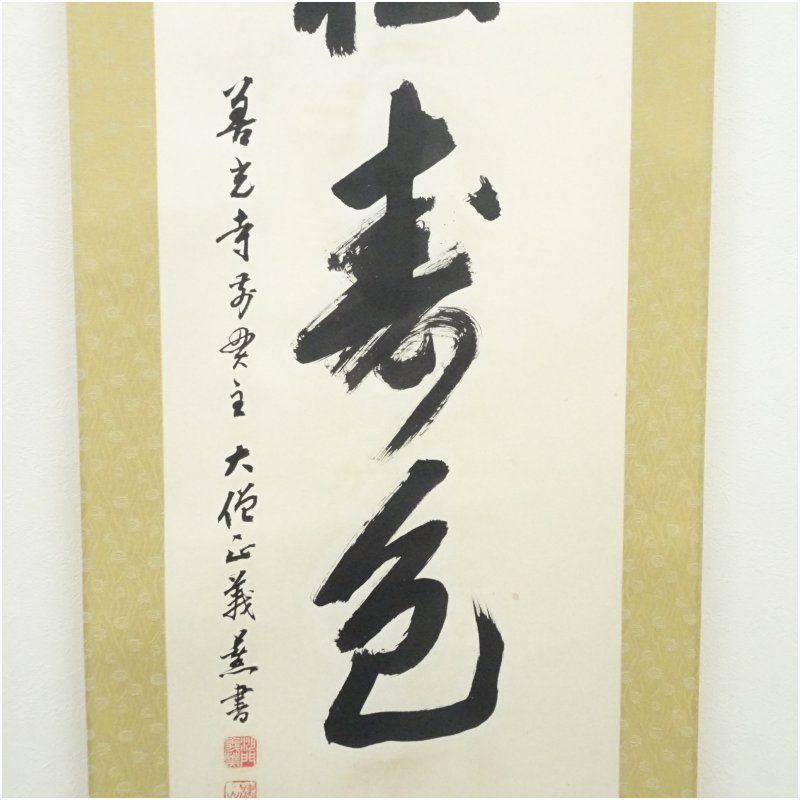 寿色
善光寺前貫主大僧正義薫書